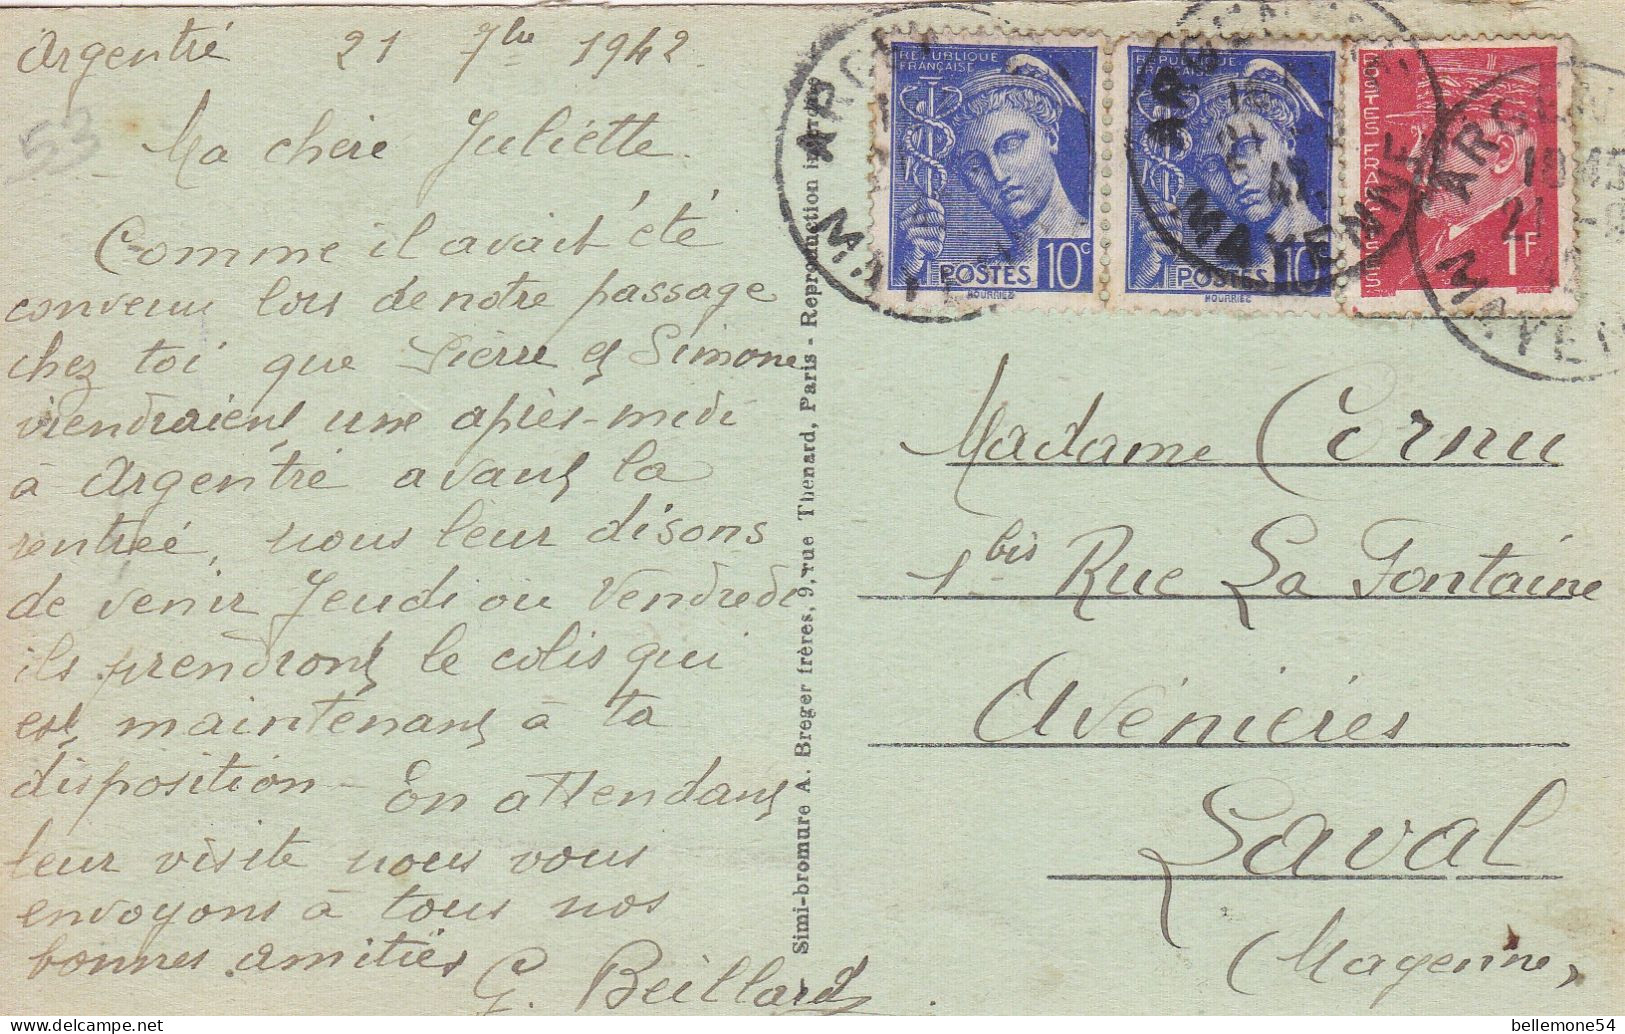 Argentré 21 7bre 1942
53
Ma chère Juliette.
Comme il avait été
convenu lors de notre passage
chez toi que Pierre et Simone
viendraient une après-midi
à Argentré avant la
rentrée, nous leur disons
de venir Jeudi ou Vendredi
ils prendront le colis qui
est maintenant à ta
disposition - En attendant
leur visite nous vous
envoyons à tous nos
bonnes amitiés
G. Beillard
Simi-bromure A. Breger frères, 9, rue Thenard, Paris - Reproduction interdite
REPUBLIQUE
FRANÇAISE
POSTES 10c
HOURRIEZ
REPUBLIQUE
FRANÇAISE
POSTES 10
HOURRIEZ
POSTES FRANÇAISES
1F
MAYENNE
21
Madame Cornu
1 bis Rue La Fontaine
Avénières
Laval
(Mayenne)
bellemone54